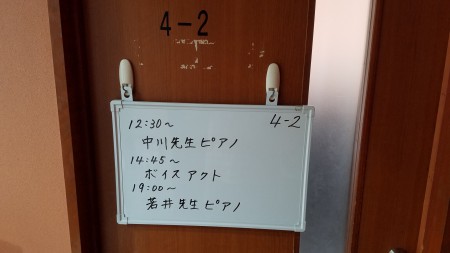 4-2
4-2
12:30〜
中川先生ピアノ
14:45〜
ボイスアクト
19:00〜
若井先生ピアノ